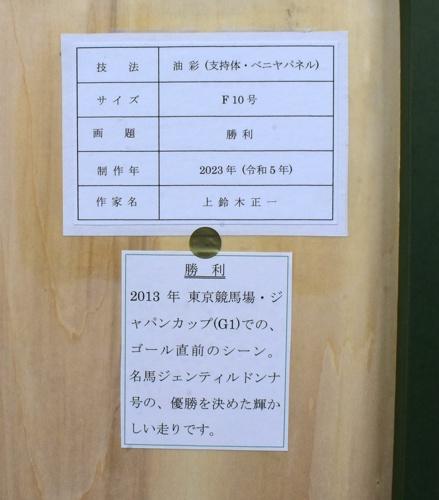 技法 油彩 (支持体・ベニヤパネル)
サイズ F10号
画題 勝利
制作年 2023年 (令和5年)
作家名 上鈴木正一
勝 利
2013 年 東京競馬場・ジ
ャパンカップ(G1)での、
ゴール直前のシーン。
名馬ジェンティルドンナ
号の、優勝を決めた輝か
しい走りです。